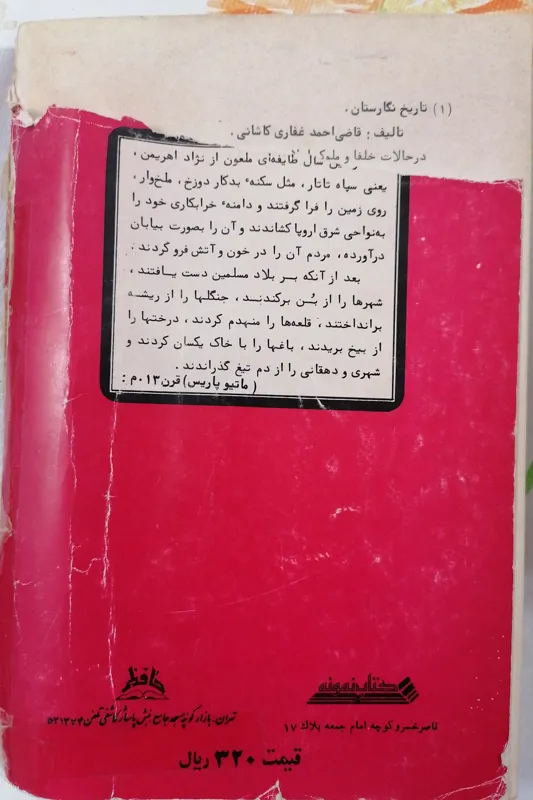 (۱) تاریخ نگارستان .
تالیف : قاضی احمد غفاری کاشانی .
در حالات خلفا و ملوک
سال طایفه‌ای ملعون از نژاد اهریمن ،
یعنی سپاه تاتار ، مثل سکنهٔ بدکار دوزخ ، ملخ‌وار ،
روی زمین را فرا گرفتند و دامنهٔ خرابکاری خود را
به‌نواحی شرق اروپا کشاندند و آن را بصورت بیابان
درآورده ، مردم آن را در خون و آتش فرو کردند .
بعد از آنکه بر بلاد مسلمین دست یافتند ،
شهرها را از بُن برکندند ، جنگلها را از ریشه
برانداختند ، قلعه‌ها را منهدم کردند ، درختها را
از بیخ بریدند ، باغها را با خاک یکسان کردند و
شهری و دهقانی را از دم تیغ گذراندند .
( ماتیو پاریس ) قرن ۱۳۰م :
کتاب نمونه
ناصرخسرو کوچه امام جمعه پلاک ۱۷
حافظ
تهران. بازار کوچه مسجد جامع نبش پاساژ کاشفی تلفن ۵۳۱۳۷۴
قیمت ۳۲۰ ریال